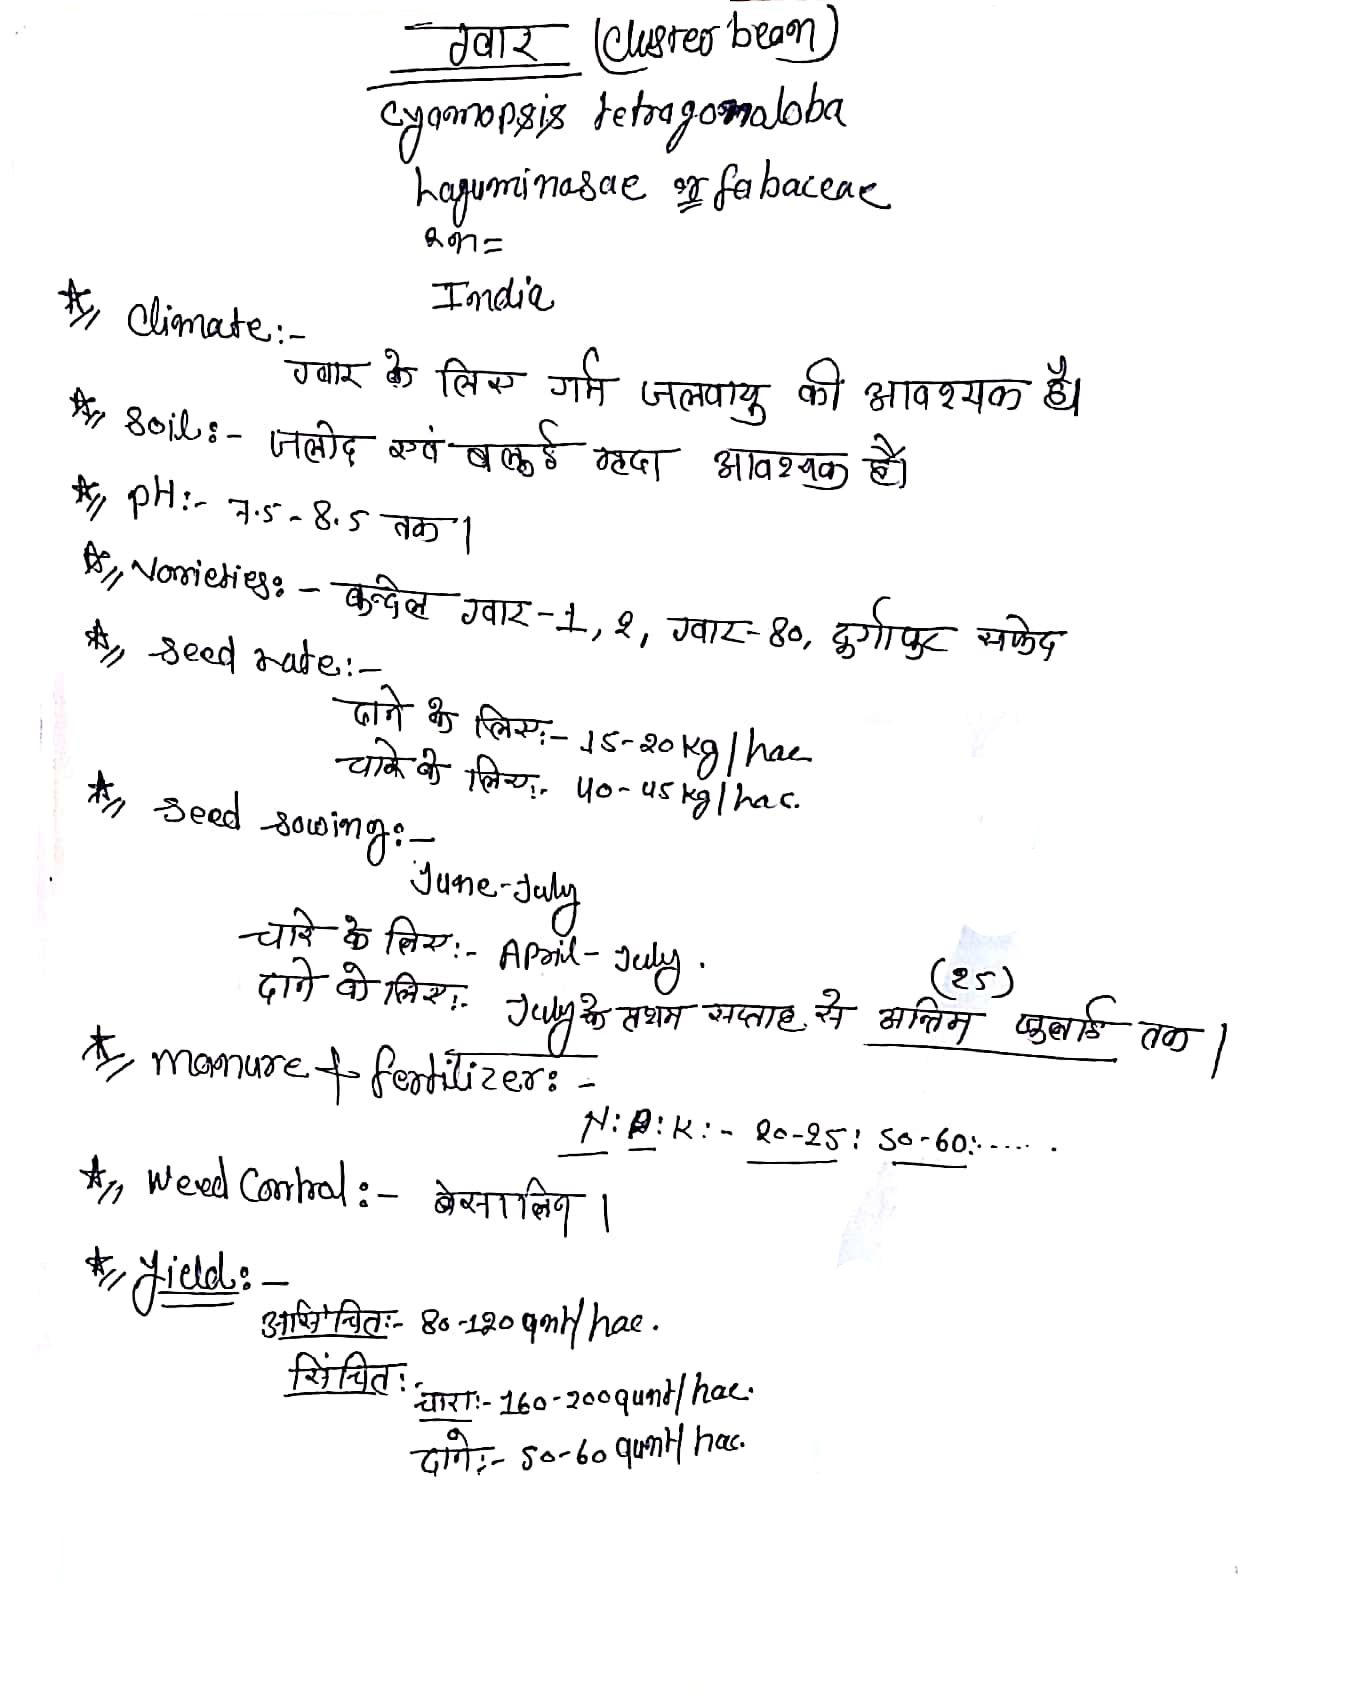 ग्वार (Cluster bean)
Cyamopsis tetragonaloba
Laguminasae or fabaceae
2n=
India
Climate:-
ग्वार के लिए गर्म जलवायु की आवश्यक है।
Soil:- जलोद एवं बलुई म्रदा आवश्यक है।
pH:- 7.5-8.5 तक।
Varieties:- बुन्देल ग्वार-1, 2, ग्वार-80, दुर्गापुर सफेद
Seed rate:-
दाने के लिए:- 15-20 kg/hac
चारे के लिए:- 40-45 kg/hac.
Seed sowing:-
June-July
चारे के लिए:- April-July.
(25)
दाने के लिए:- July के प्रथम सप्ताह से अन्तिम जुलाई तक।
Manure & fertilizer:-
N:P:K:- 20-25: 50-60:.....
Weed Control:- बेसालिन।
Yield:-
असिंचित:- 80-120 qnt/hac.
सिंचित:-
चारा:- 160-200 qunt/hac.
दाने:- 50-60 qunt/hac.